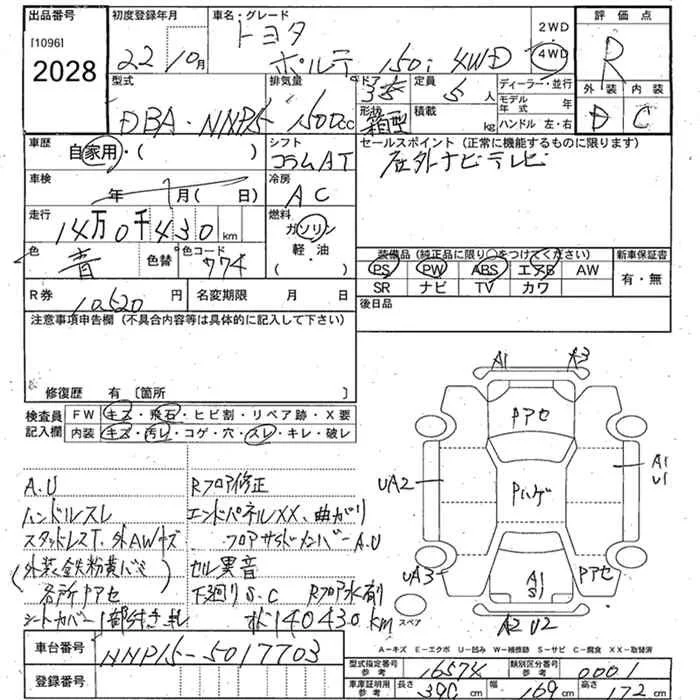 出品番号 初度登録年月 車名・グレード 2WD 評価点
[1096] 2028 22年10月 トヨタ 4WD R
ポルテ 150i 4WD
型式 排気量 ドア 定員 ディーラー・並行 外装 内装
DBA-NNP15 1500cc 3 5人 モデル年式 年 D C
形状 箱型 積載 kg ハンドル 左・右
車歴 自家用・( ) シフト コラムAT セールスポイント（正常に機能するものに限ります）
社外ナビ・テレビ
車検 年 月(日) 冷房 AC
走行 14万0千430km 燃料 ガソリン
軽・油
( )
色 青 色替 色コード 774
装備品（純正品に限り○をつけてください） 新車保証書
PS PW ABS エアB AW 有・無
SR ナビ TV カワ
R券 10520円 名変期限 月 日 後日品
注意事項申告欄（不具合内容等は具体的に記入して下さい）
修復歴 有〔箇所 〕
検査員 FW キズ・飛石・ヒビ割・リペア跡・X要
記入欄 内装 キズ・汚レ・コゲ・穴・スレ・キレ・破レ
A.U Rフロア修正
ハンドルスレ エンドパネルXX、曲がり
スタッドレスT、外AWキズ フロアサイドメンバーA.U
(外装鉄粉黄バミ) セル異音
各所アセ 下廻りS.C Rフロア水有
シートカバー1部付き 140430km
A1 A3
Pアセ
UA2 Pハゲ A1
U1
UA3 A1 Pアセ
S1
スペア A2 U2
A−キズ E−エクボ U−凹み W−補修跡 S−サビ C−腐食 XX−取替済
車台番号 NNP15-5017703
登録番号
型式指定番号 参考 16574 類別区分番号 参考 0001
車庫証明用 参考 長さ 390cm 幅 169cm 高さ 172cm